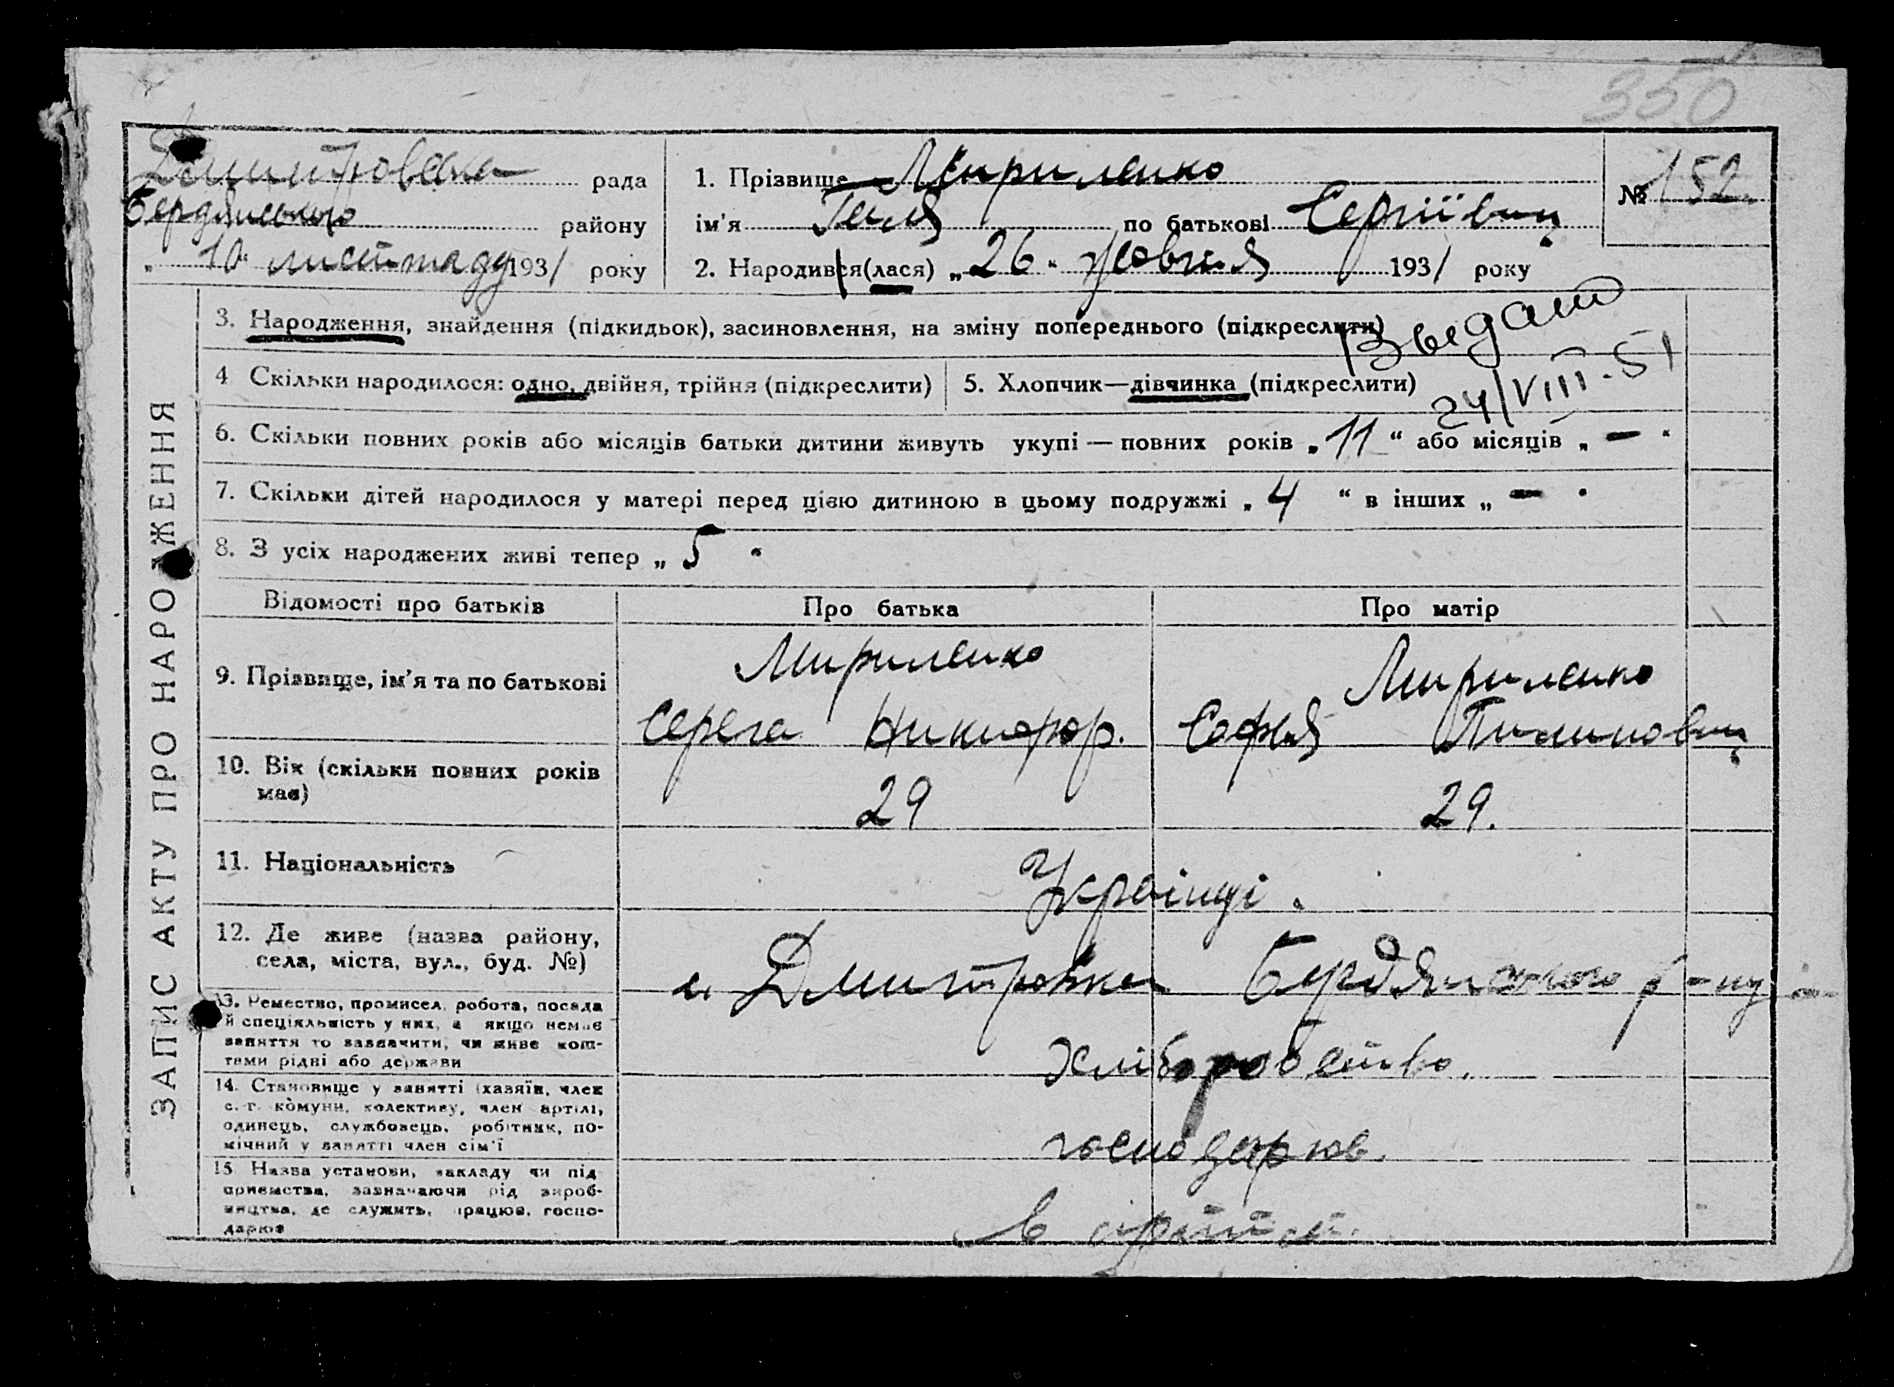 350
Дмитровська рада
Бердянського району
„ 10 " листопаду 1931 року
1. Прізвище Мириленко
ім'я Геля по батькові Сергіївни
2. Народився(лася) „ 26 " жовтня 1931 року
№ 152
ЗАПИС АКТУ ПРО НАРОДЖЕННЯ
3. Народження, знайдення (підкидьок), засиновлення, на зміну попереднього (підкреслити)
Выдано
24/VIII-51
4 Скільки народилося: одно, двійня, трійня (підкреслити)
5. Хлопчик—дівчинка (підкреслити)
6. Скільки повних років або місяців батьки дитини живуть укупі — повних років „ 11 “ або місяців „ — “
7. Скільки дітей народилося у матері перед цією дитиною в цьому подружжі „ 4 “ в інших „ — "
8. З усіх народжених живі тепер „ 5 "
Відомості про батьків Про батька Про матір
9. Прізвище, ім'я та по батькові
Мириленко
Серега Никифор.
Мириленко
Софья
10. Вік (скільки повних років має)
29
29.
11. Національність
Українці.
12. Де живе (назва району, села, міста, вул., буд. №)
с. Дмитровка Бердянського р-ну
13. Ремество, промисел, робота, посада й спеціяльність у них, а якщо немає заняття то зазначити, чи живе коштами рідні або держави
Хліборобство.
14. Становище у занятті (хазяїн, член с.-г. комуни, колективу, член артілі, одинець, службовець, робітник, помічний у занятті член сім'ї
господарюв.
15. Назва установи, закладу чи підприємства, зазначаючи рід виробництва, де служить, працює, господарює
в